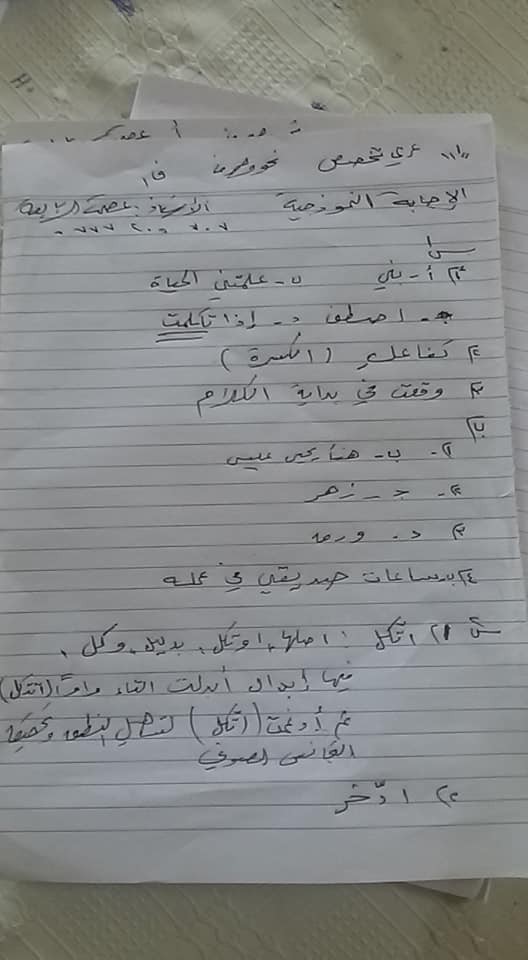 عربي تخصص نحو وصرف ف١
الإجابة النموذجية الأستاذ: عصمت
س١
أ- بني ب- علمتني الحياة
جـ- اصطف د- إذا تكلمت
٢ كفاعل (الكسرة)
٣ وقعت في بداية الكلام
ب
١- ب- هنأ يحيى عيسى
٢- جـ - زهر
٣ د- ورد
٤ ب ساعات صديقي في عمله
س٢ ١) اتكل : اصلها، اوتكل، بدليل، وكل،
فيها إبدال أبدلت التاء واواً (اتتكل)
ثم أدغمت (اتكل) لتسهيل النطق وتحقيق
التجانس الصوتي
٢) ادّخر